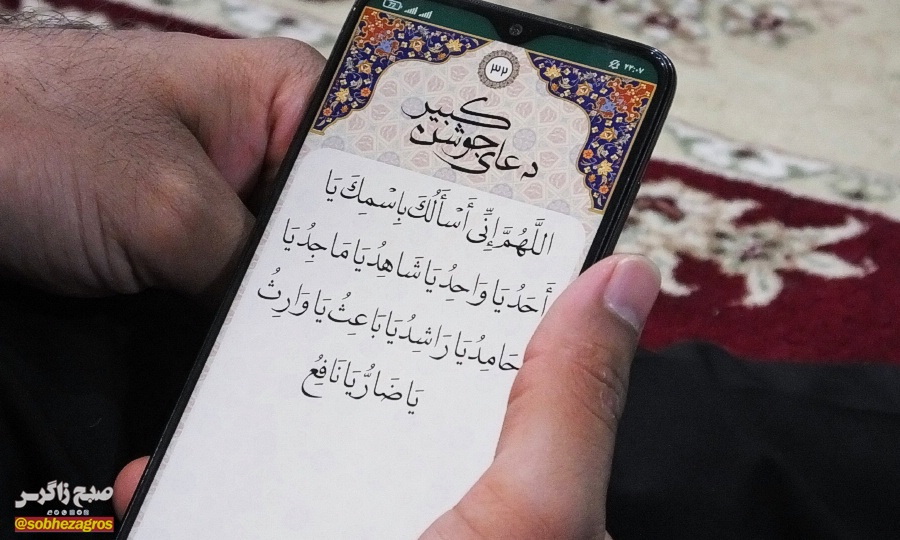 ۲۳:۰۷
۳۲
دعای جوشن
کبیر
اللَّهُمَّ إِنِّي أَسْأَلُكَ بِاسْمِكَ يَا
أَحَدُ يَا وَاحِدُ يَا شَاهِدُ يَا مَاجِدُ يَا
حَامِدُ يَا رَاشِدُ يَا بَاعِثُ يَا وَارِثُ
يَا ضَارُّ يَا نَافِعُ
صبح زاگرس
@sobhezagros